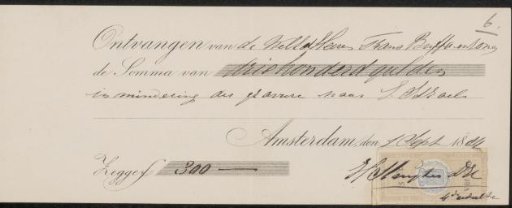 6.
Ontvangen van de Heeren Frans Buffa en Zonen
de Somma van driehonderd gulden
in mindering der gravure naar J. Israels
Amsterdam, den 1 Sept 18
Zegge ƒ 300 —